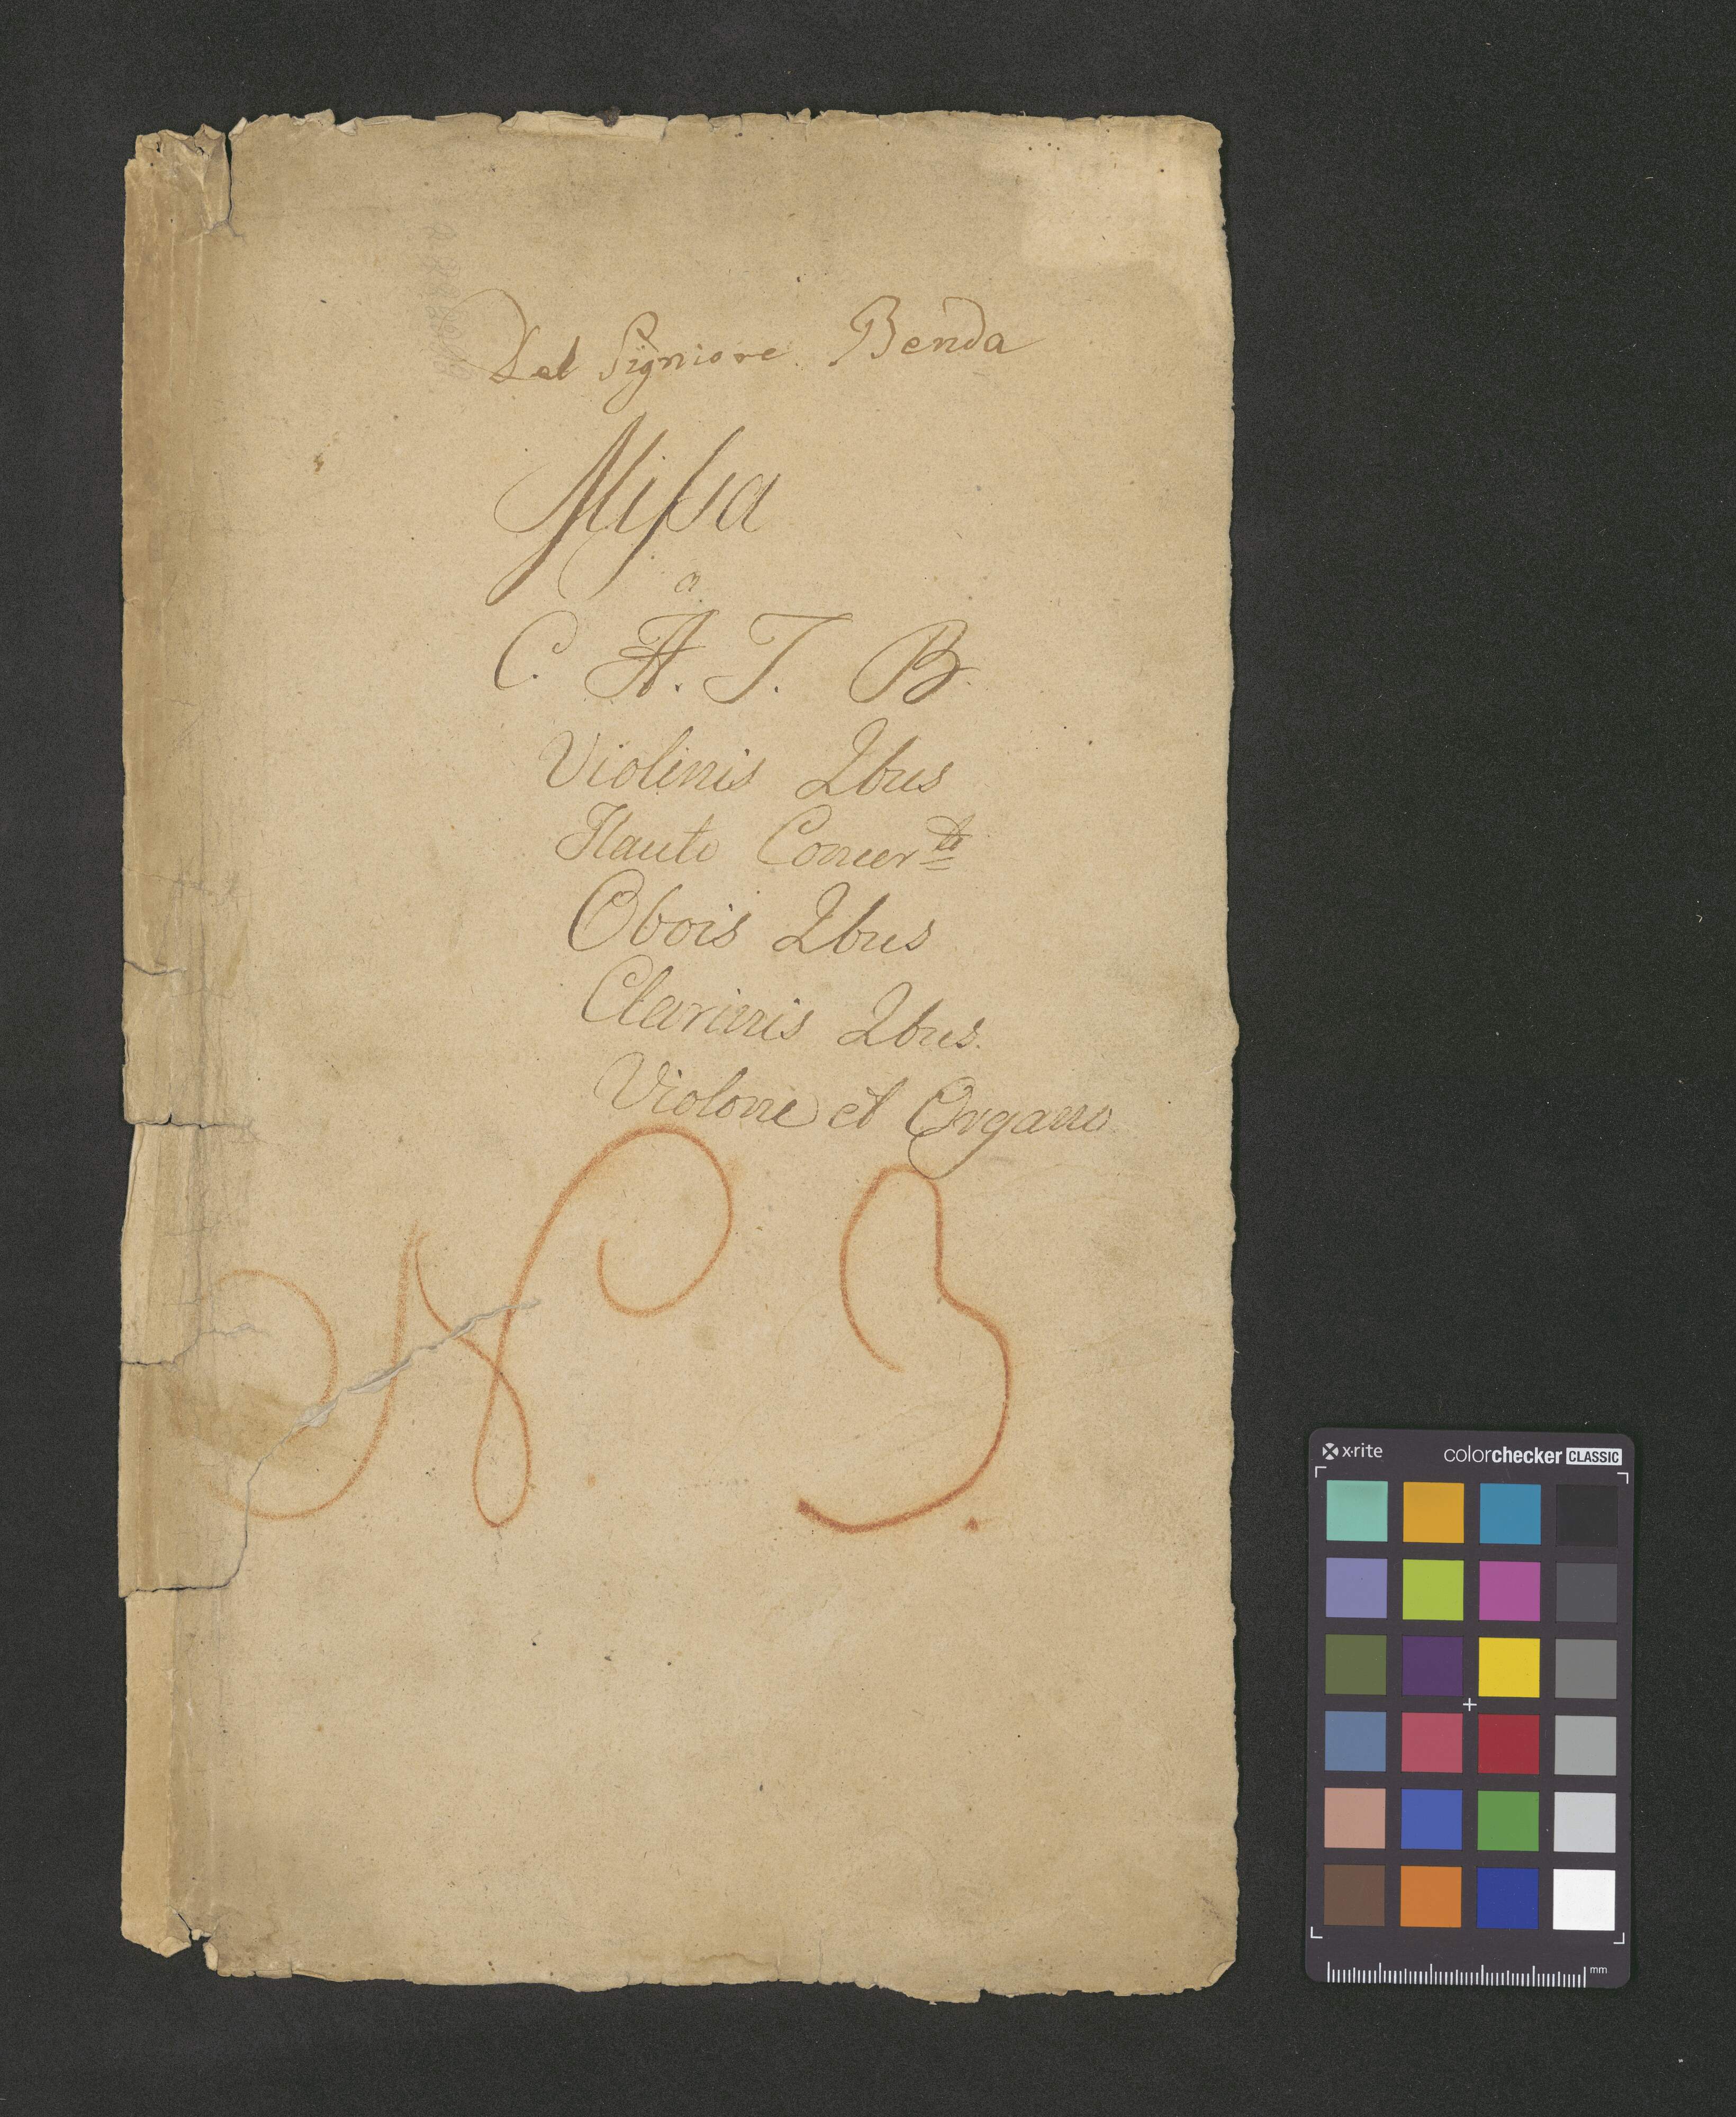 Del Signiore Benda
Missa
a
C. A. T. B.
Violinis 2bus
Flauto Concer to
Obois 2bus
Clarinis 2bus.
Violone et Organo
N 3.
x-rite colorchecker CLASSIC
mm